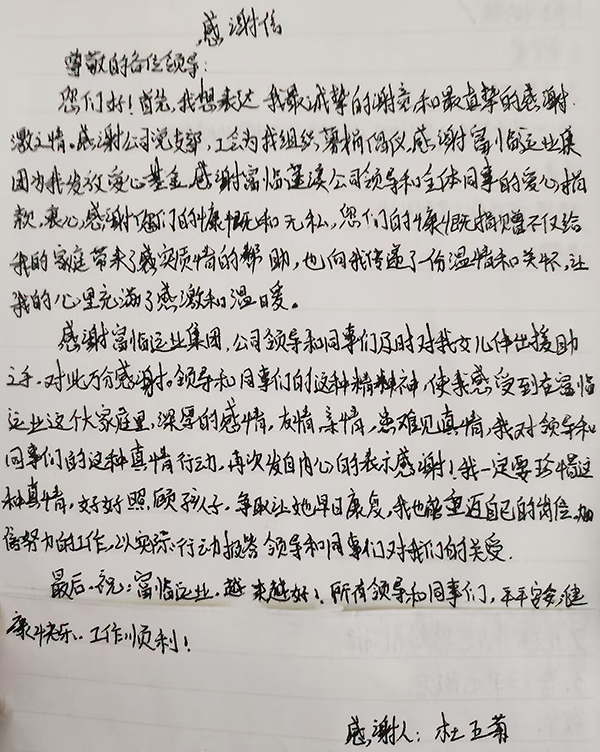 感谢信
尊敬的各位领导:
您们好!首先,我想表达我最诚挚的谢意和最真挚的感谢
激之情。感谢公司党支部,工会为我组织募捐倡仪,感谢富临运业集
团为我发放爱心基金,感谢富临蓬溪公司领导和全体同事的爱心捐
款,衷心感谢你们的慷慨和无私,您们的慷慨捐赠不仅给
我的家庭带来了实质情的帮助,也向我传递了一份温情和关怀,让
我的心里充满了感激和温暖。
感谢富临运业集团,公司领导和同事们及时对我女儿伸出援助
之手,对此万分感谢。领导和同事们的这种精神,使我感受到在富临
运业这个大家庭里,深厚的感情,友情,亲情,患难见真情,我对领导和
同事们的这种真情行动,再次发自内心的表示感谢!我一定要珍惜这
种真情,好好照顾孩子,争取让她早日康复,我也能重返自己的岗位,加
倍努力的工作,以实际行动报答领导和同事们对我们的关爱.
最后,祝:富临运业,越来越好!所有领导和同事们,平平安安,健
康快乐.工作顺利!
感谢人:杜玉菊